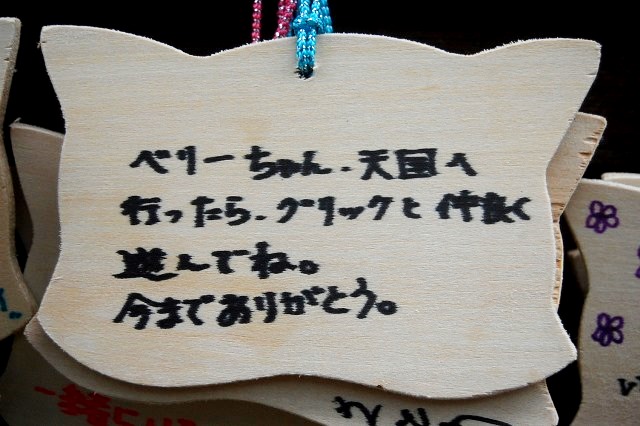 ベリーちゃん、天国へ
行ったら、グリックと仲良く
遊んでね。
今までありがとう。